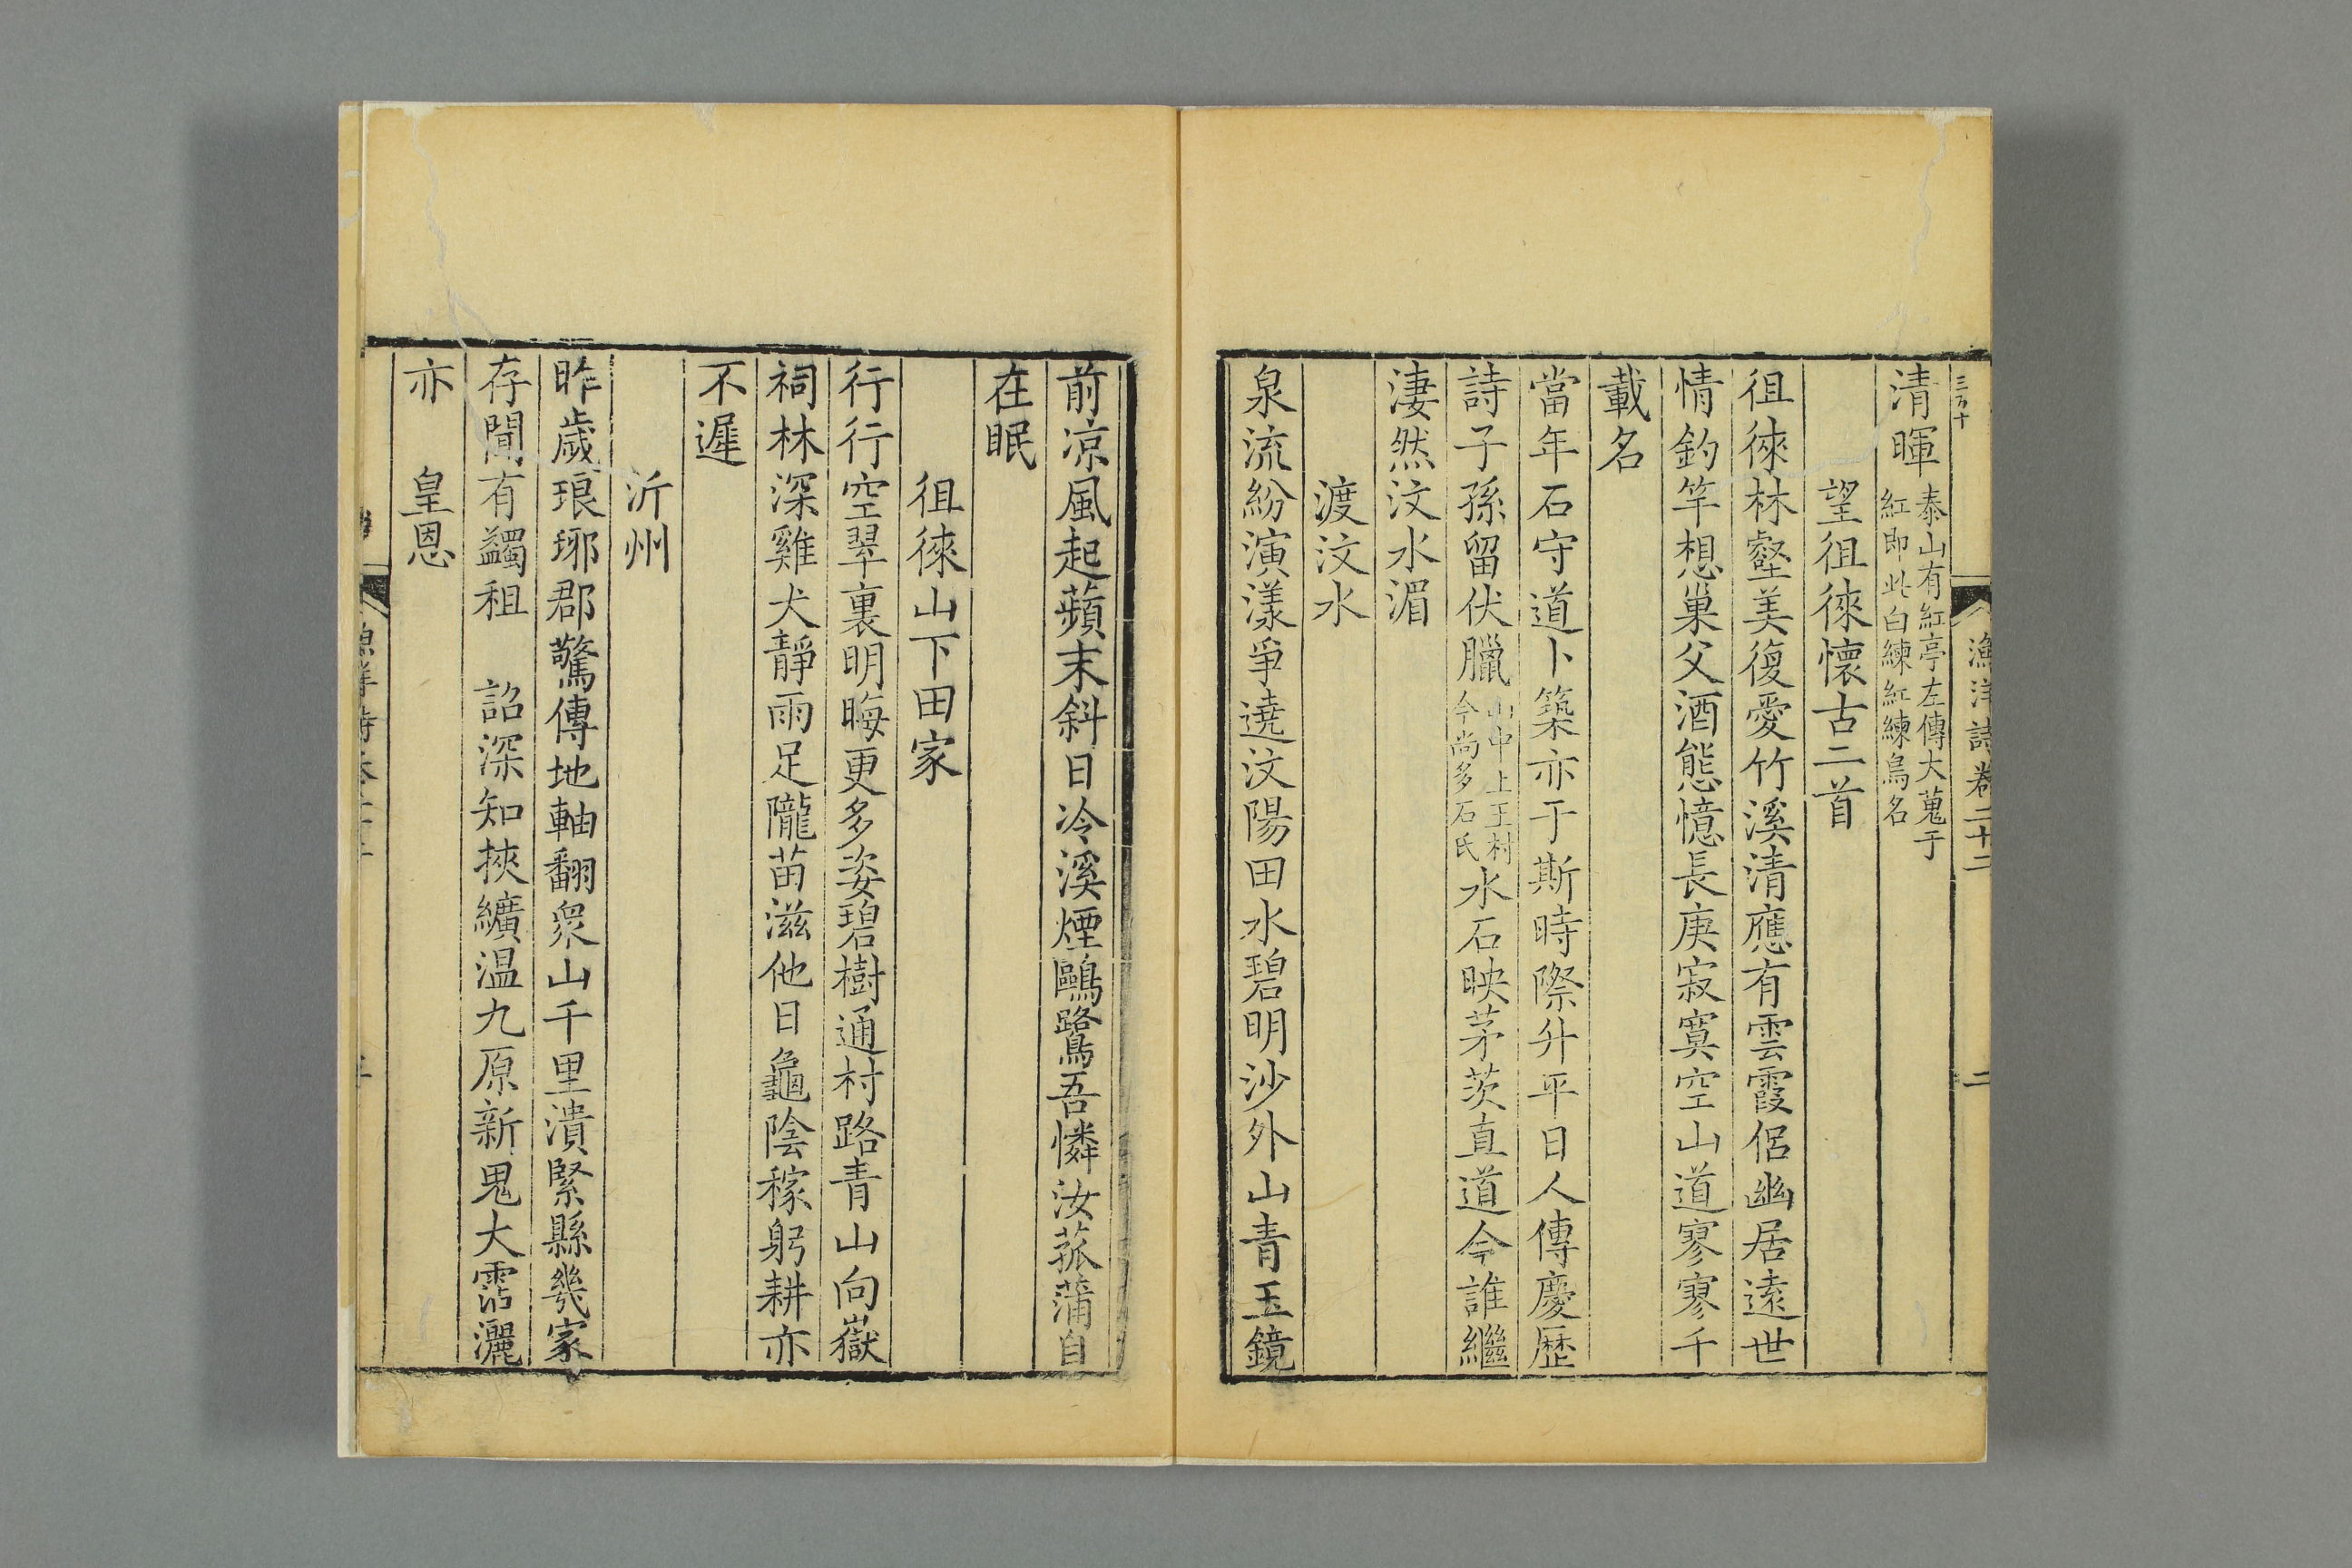 三百十
漁洋詩卷二十二
二
清暉泰山有紅亭左傳大蒐于
紅即此白練紅練鳥名
望徂徠懷古二首
徂徠林壑美復愛竹溪清應有雲霞侶幽居遠世
情釣竿想巢父酒態憶長庚寂寞空山道寥寥千
載名
當年石守道卜築亦于斯時際升平日人傳慶歷
詩子孫留伏臘山中上王村
今尚多石氏水石映茅茨直道今誰繼
淒然汶水湄
渡汶水
泉流紛演漾爭遶汶陽田水碧明沙外山青玉鏡
前凉風起蘋末斜日冷溪煙鷗鷺吾憐汝菰蒲自
在眠
徂徠山下田家
行行空翠裏明晦更多姿碧樹通村路青山向嶽
祠林深雞犬靜雨足隴苗滋他日龜陰稼躬耕亦
不遲
沂州
昨歲琅琊郡驚傳地軸翻衆山千里潰緊縣幾家
存聞有蠲租　詔深知挾纊温九原新鬼大霑灑
亦　皇恩